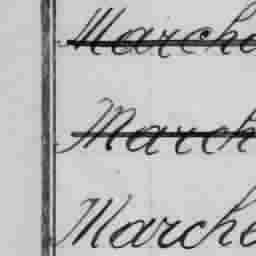 Marche
March
Marche